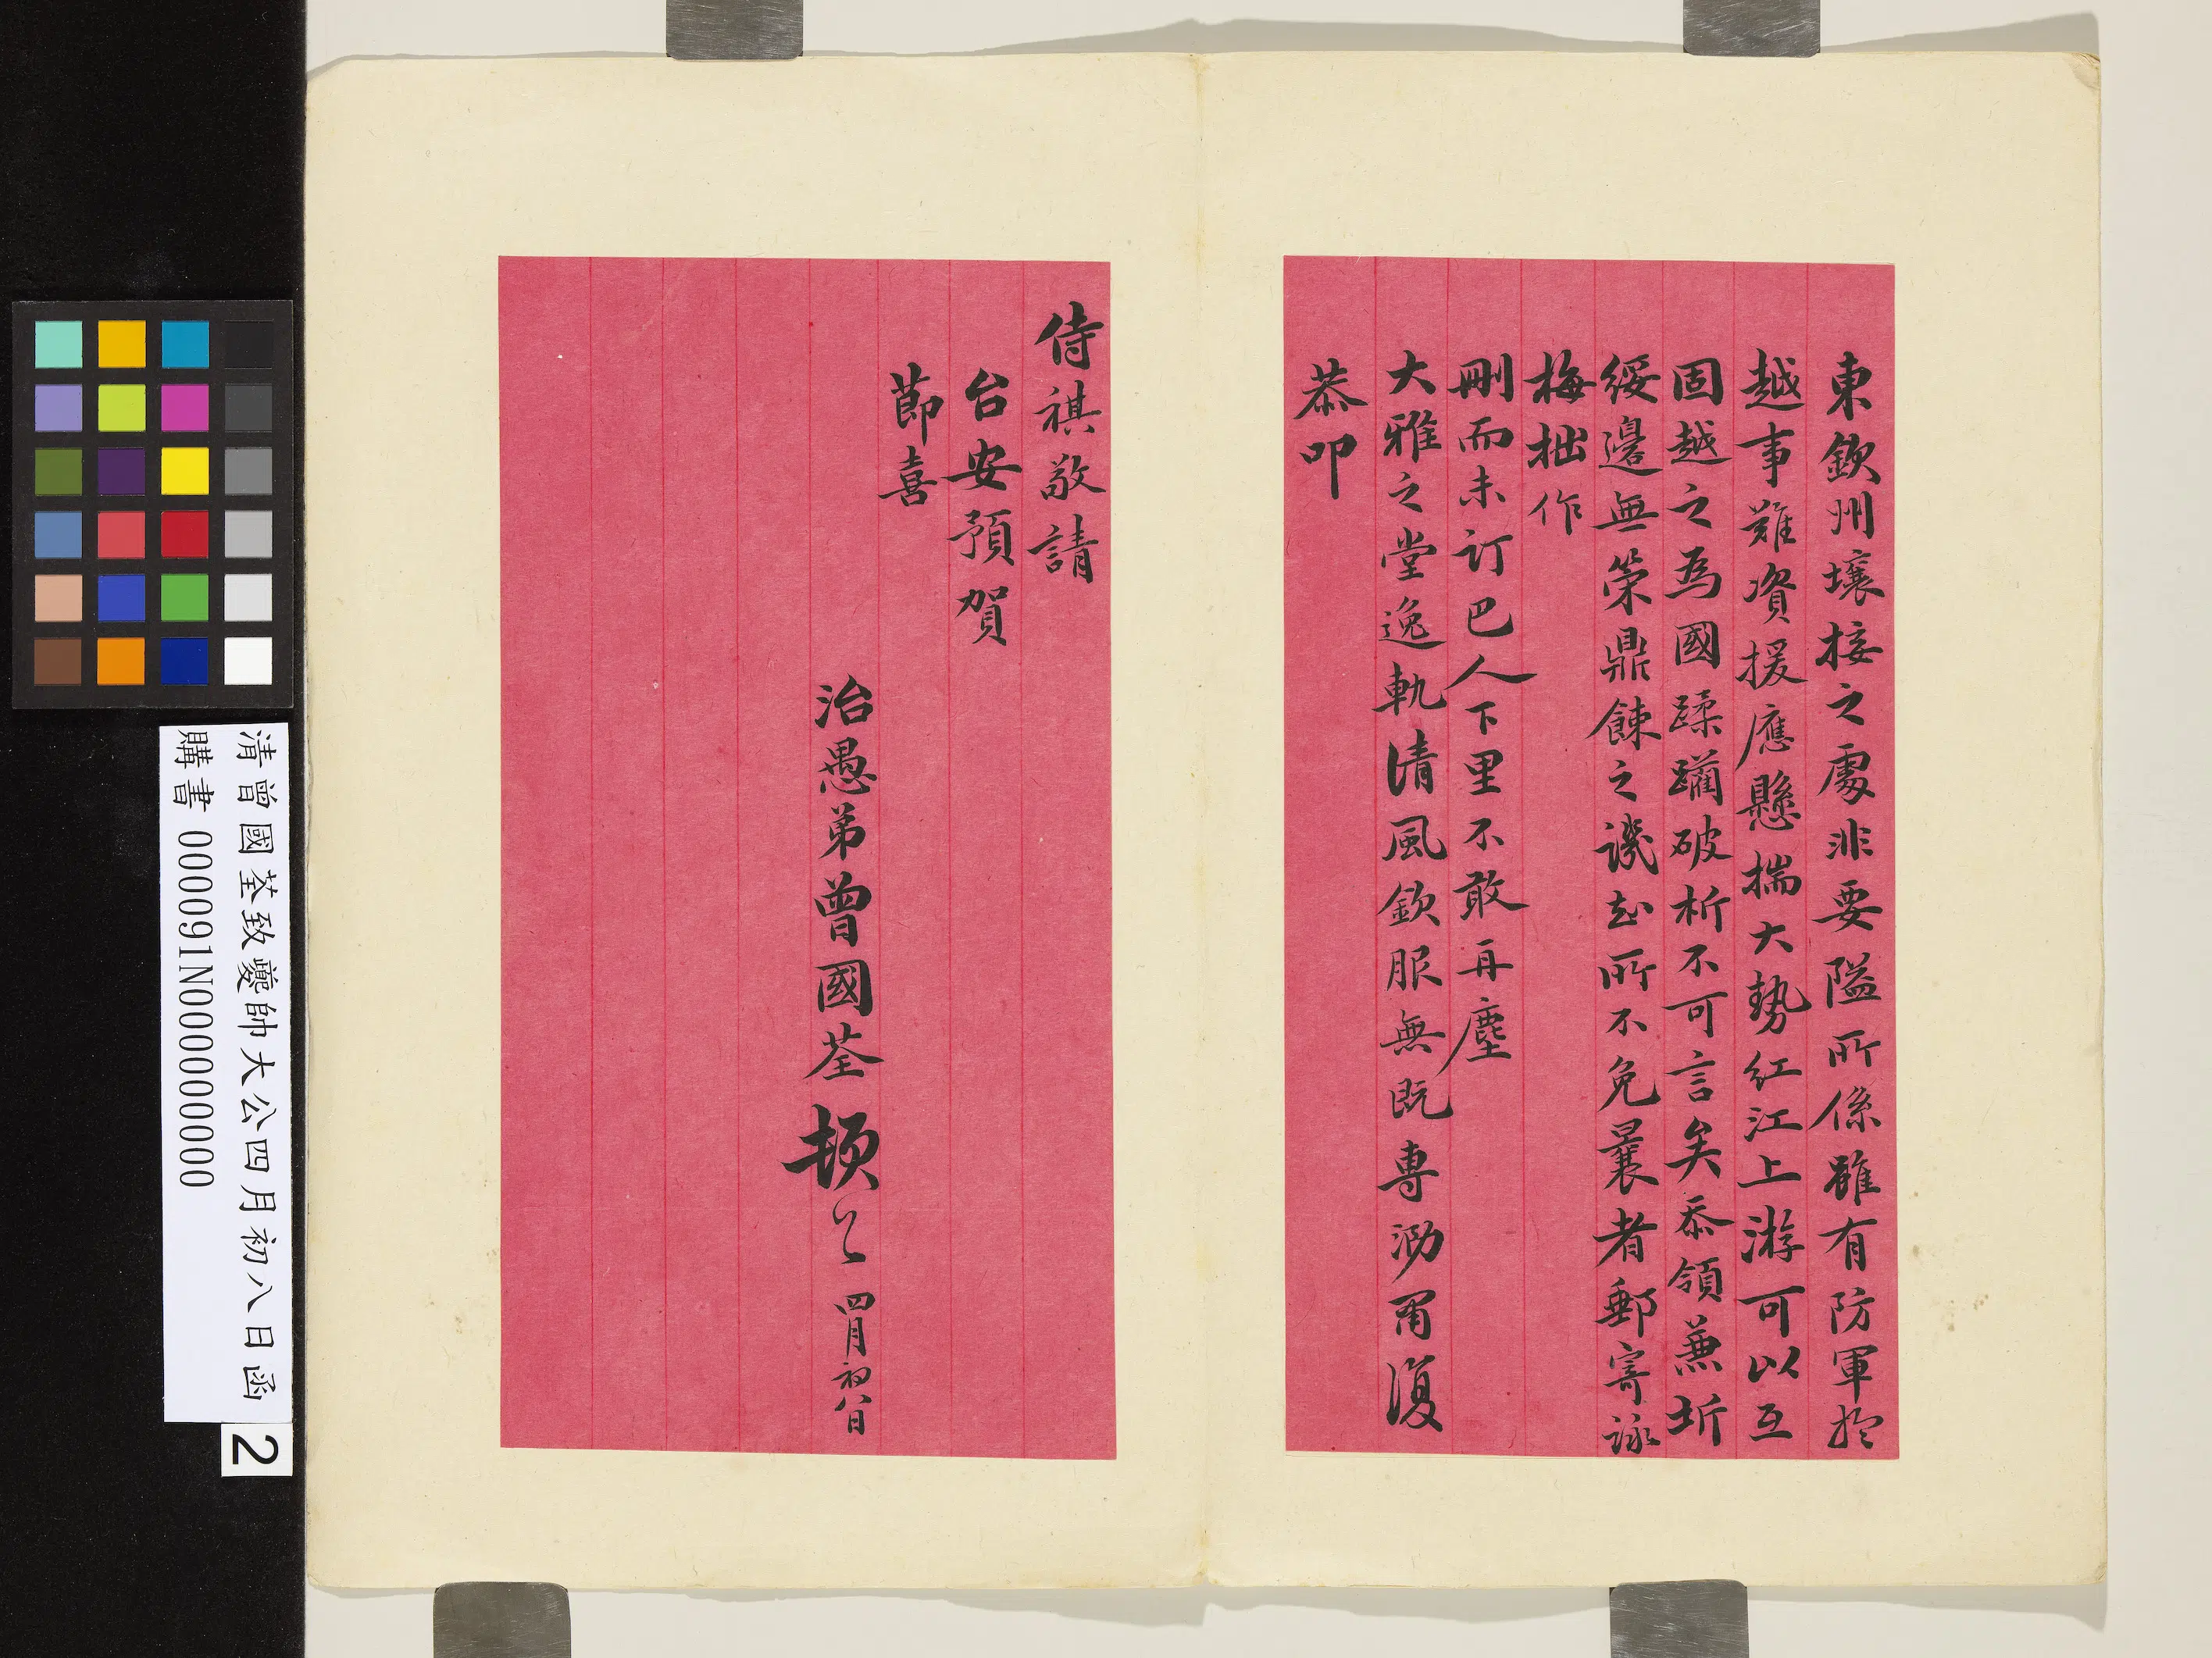 東欽州壤接之處非要隘所係雖有防軍於
越事難資援應懸揣大勢紅江上游可以互
固越之為國蹂躪破析不可言矣忝領兼圻
綏邊無策鼎餗之譏知所不免曩者郵寄詠
梅拙作
刪而未訂巴人下里不敢再塵
大雅之堂逸軌清風欽服無既專泐肅復
恭叩
侍祺敬請
台安預賀
節喜
治愚弟曾國荃頓首 四月初八日
清曾國荃致夔帥大公四月初八日函
購書 000091N000000000
2